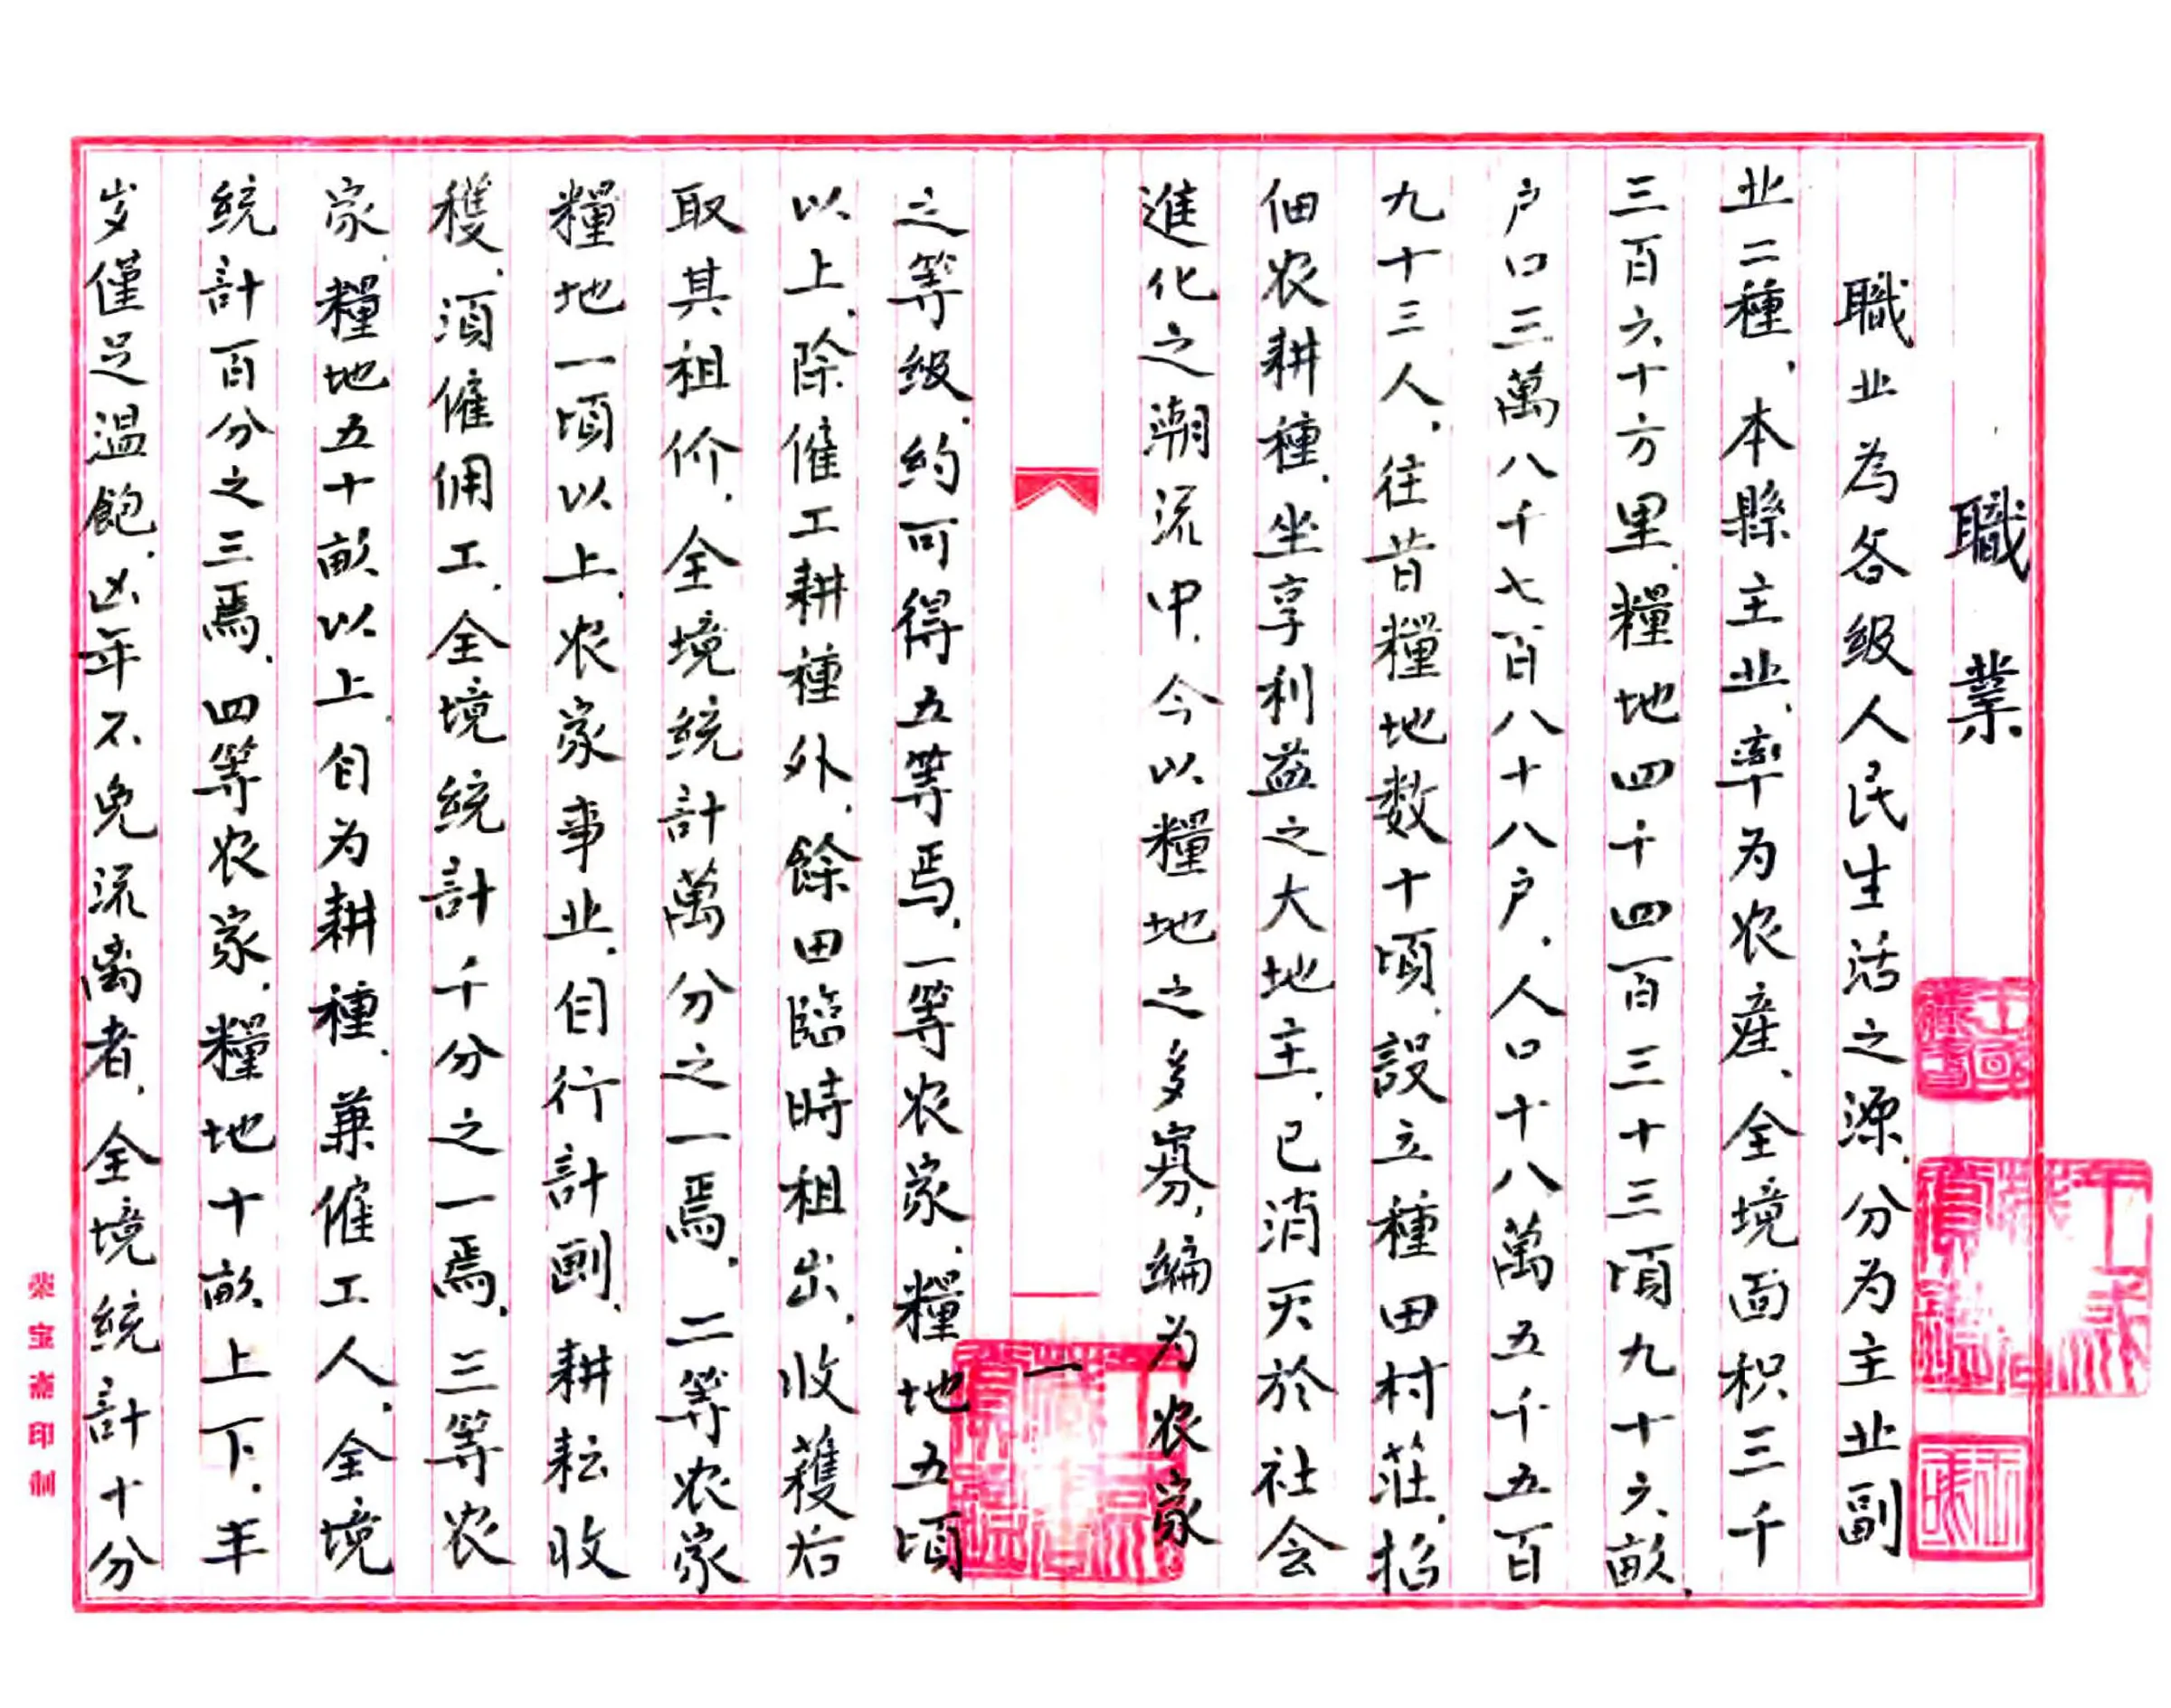 職業
職业為各级人民生活之源.分为主业副
业二種、本縣主业、率为农産、全境面积三千
三百六十方里.糧地四千四百三十三頃九十六畝.
户口三萬八千七百八十八户.人口十八萬五千五百
九十三人.往昔糧地数十頃.設立種田村莊.招
佃农耕種.坐享利益之大地主.已消灭於社会
進化之潮流中.今以糧地之多寡.编为农家
一
之等级.约可得五等焉.一等农家.糧地五頃
以上.除僱工耕種外.餘田臨時租出.收穫后
取其租价.全境統計萬分之一焉.二等农家
糧地一頃以上.农家事业.自行計劃.耕耘收
穫.須僱佣工.全境統計千分之一焉.三等农
家.糧地五十畝以上.自为耕種.兼僱工人.全境
統計百分之三焉.四等农家.糧地十畝上下.丰
岁僅足温飽.凶年不免流离者.全境統計十分
荣宝斋印制